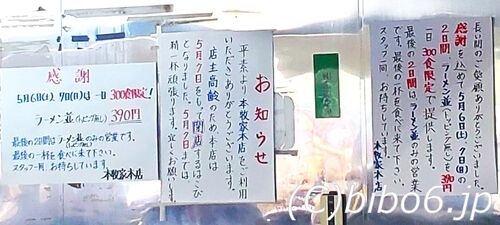 感謝
5月6日(土)、7日(日)は一日300食限定!
ラーメン並(トッピング無し)390円
最後の2日間はラーメン並のみの営業です。
最後の一杯を食べに来て下さい。
スタッフ一同、お待ちしています。
本牧家本店
お知らせ
平素より本牧家本店をご利用
いただきありがとうございます。
店主高齢のため本店は
5月7日をもって閉店するはこび
となりました。5月7日までは
精一杯頑張ります。宜しくお願いします。
長い間のご愛顧ありがとうございました。
感謝を込めて5月6日(土)、7日(日)の
2日間ラーメン並(トッピング無し)を390円
一日300食限定で提供します。
最後の2日間はラーメン並のみの営業
最後の一杯を食べに来て下さい。
スタッフ一同、お待ちしています。
本牧家本店
(C)blbo6.jp